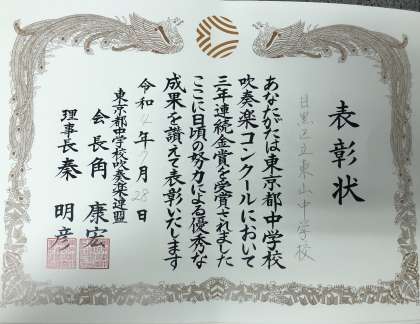 表彰状
目黒区立東山中学校
あなたがたは東京都中学校
吹奏楽コンクールにおいて
三年連続金賞を受賞されました
ここに日頃の努力による優秀な
成果を讃えて表彰いたします
令和4年7月28日
東京都中学校吹奏楽連盟
会長 角 康宏
理事長 秦 明彦